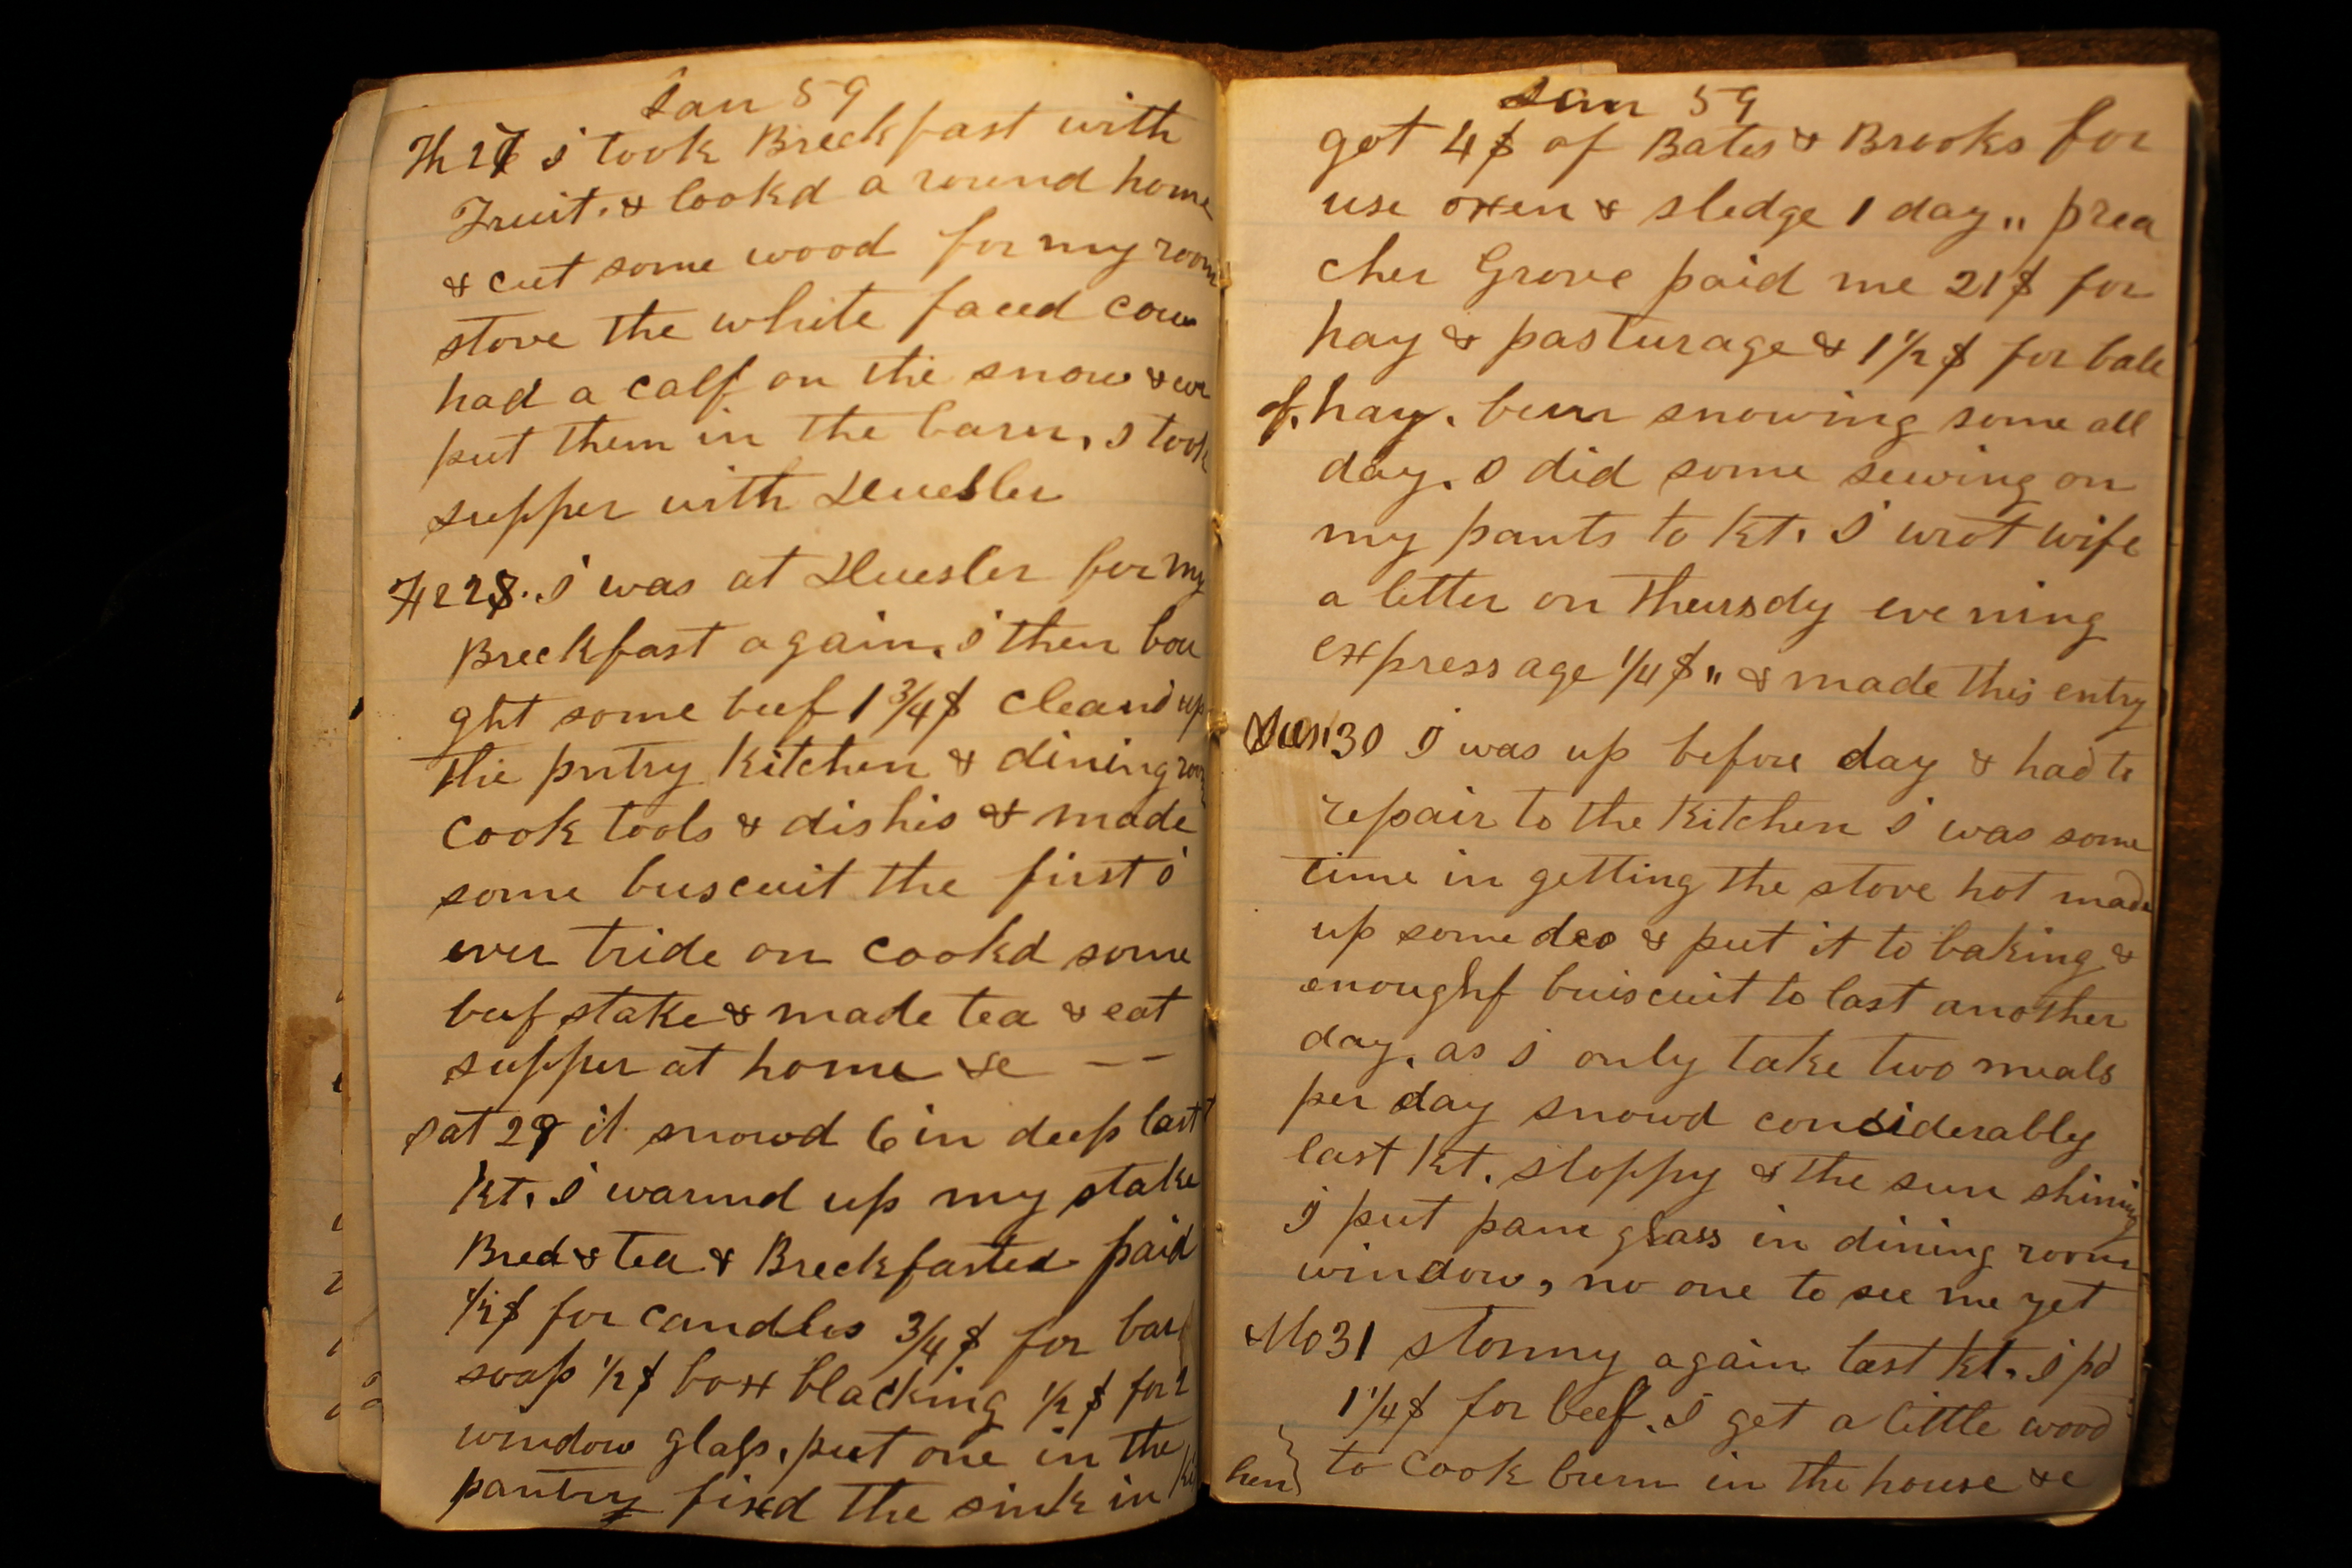 Jan 59
Th 27 i took Breckfast with
Fruit. & lookd a round home
& cut some wood for my room
stove the white faced cow
had a calf on the snow & we
put them in the barn, I took
supper with Huesler
Fr 28. I was at Huesler for my
Breckfast again. I then bou
ght some beef 1 3/4 $ cleand up
the pntry kitchen & dining room
cook tools & dishis & made
some buscuit the first i
ever tride on cookd some
beef stake & made tea & eat
supper at home &c — —
Sat 29 it snowd 6 in deep last
kt. I warmd up my stake
Bred & tea & Breckfasted paid
1/2 $ for candles 3/4 $ for bar
soap 1/2 $ box blacking 1/2 $ for 2
window glass, put one in the
pantry fixd the sink in kit
Jan 59
got 4 $ of Bates & Brooks for
use oxen & sledge 1 day " prea
cher Grove paid me 21 $ for
hay & pasturage & 1 1/2 $ for bale
of. hay. been snowing some all
day. I did some sewing on
my pants to kt. I wrot wife
a letter on Thursdy evening
expressage 1/4 $ " & made this entry
Sun 30 I was up before day & had to
repair to the kitchen I was some
time in getting the stove hot made
up some deo & put it to baking &
enoughf buiscuit to last another
day. as I only take two meals
per day snowd considerably
last kt. sloppy & the sun shining
I put pane glass in dining room
window, no one to see me yet
Mo 31 stormy again last kt. I pd
1 1/4 $ for beef. I get a little wood
hen} to cook burn in the house &c